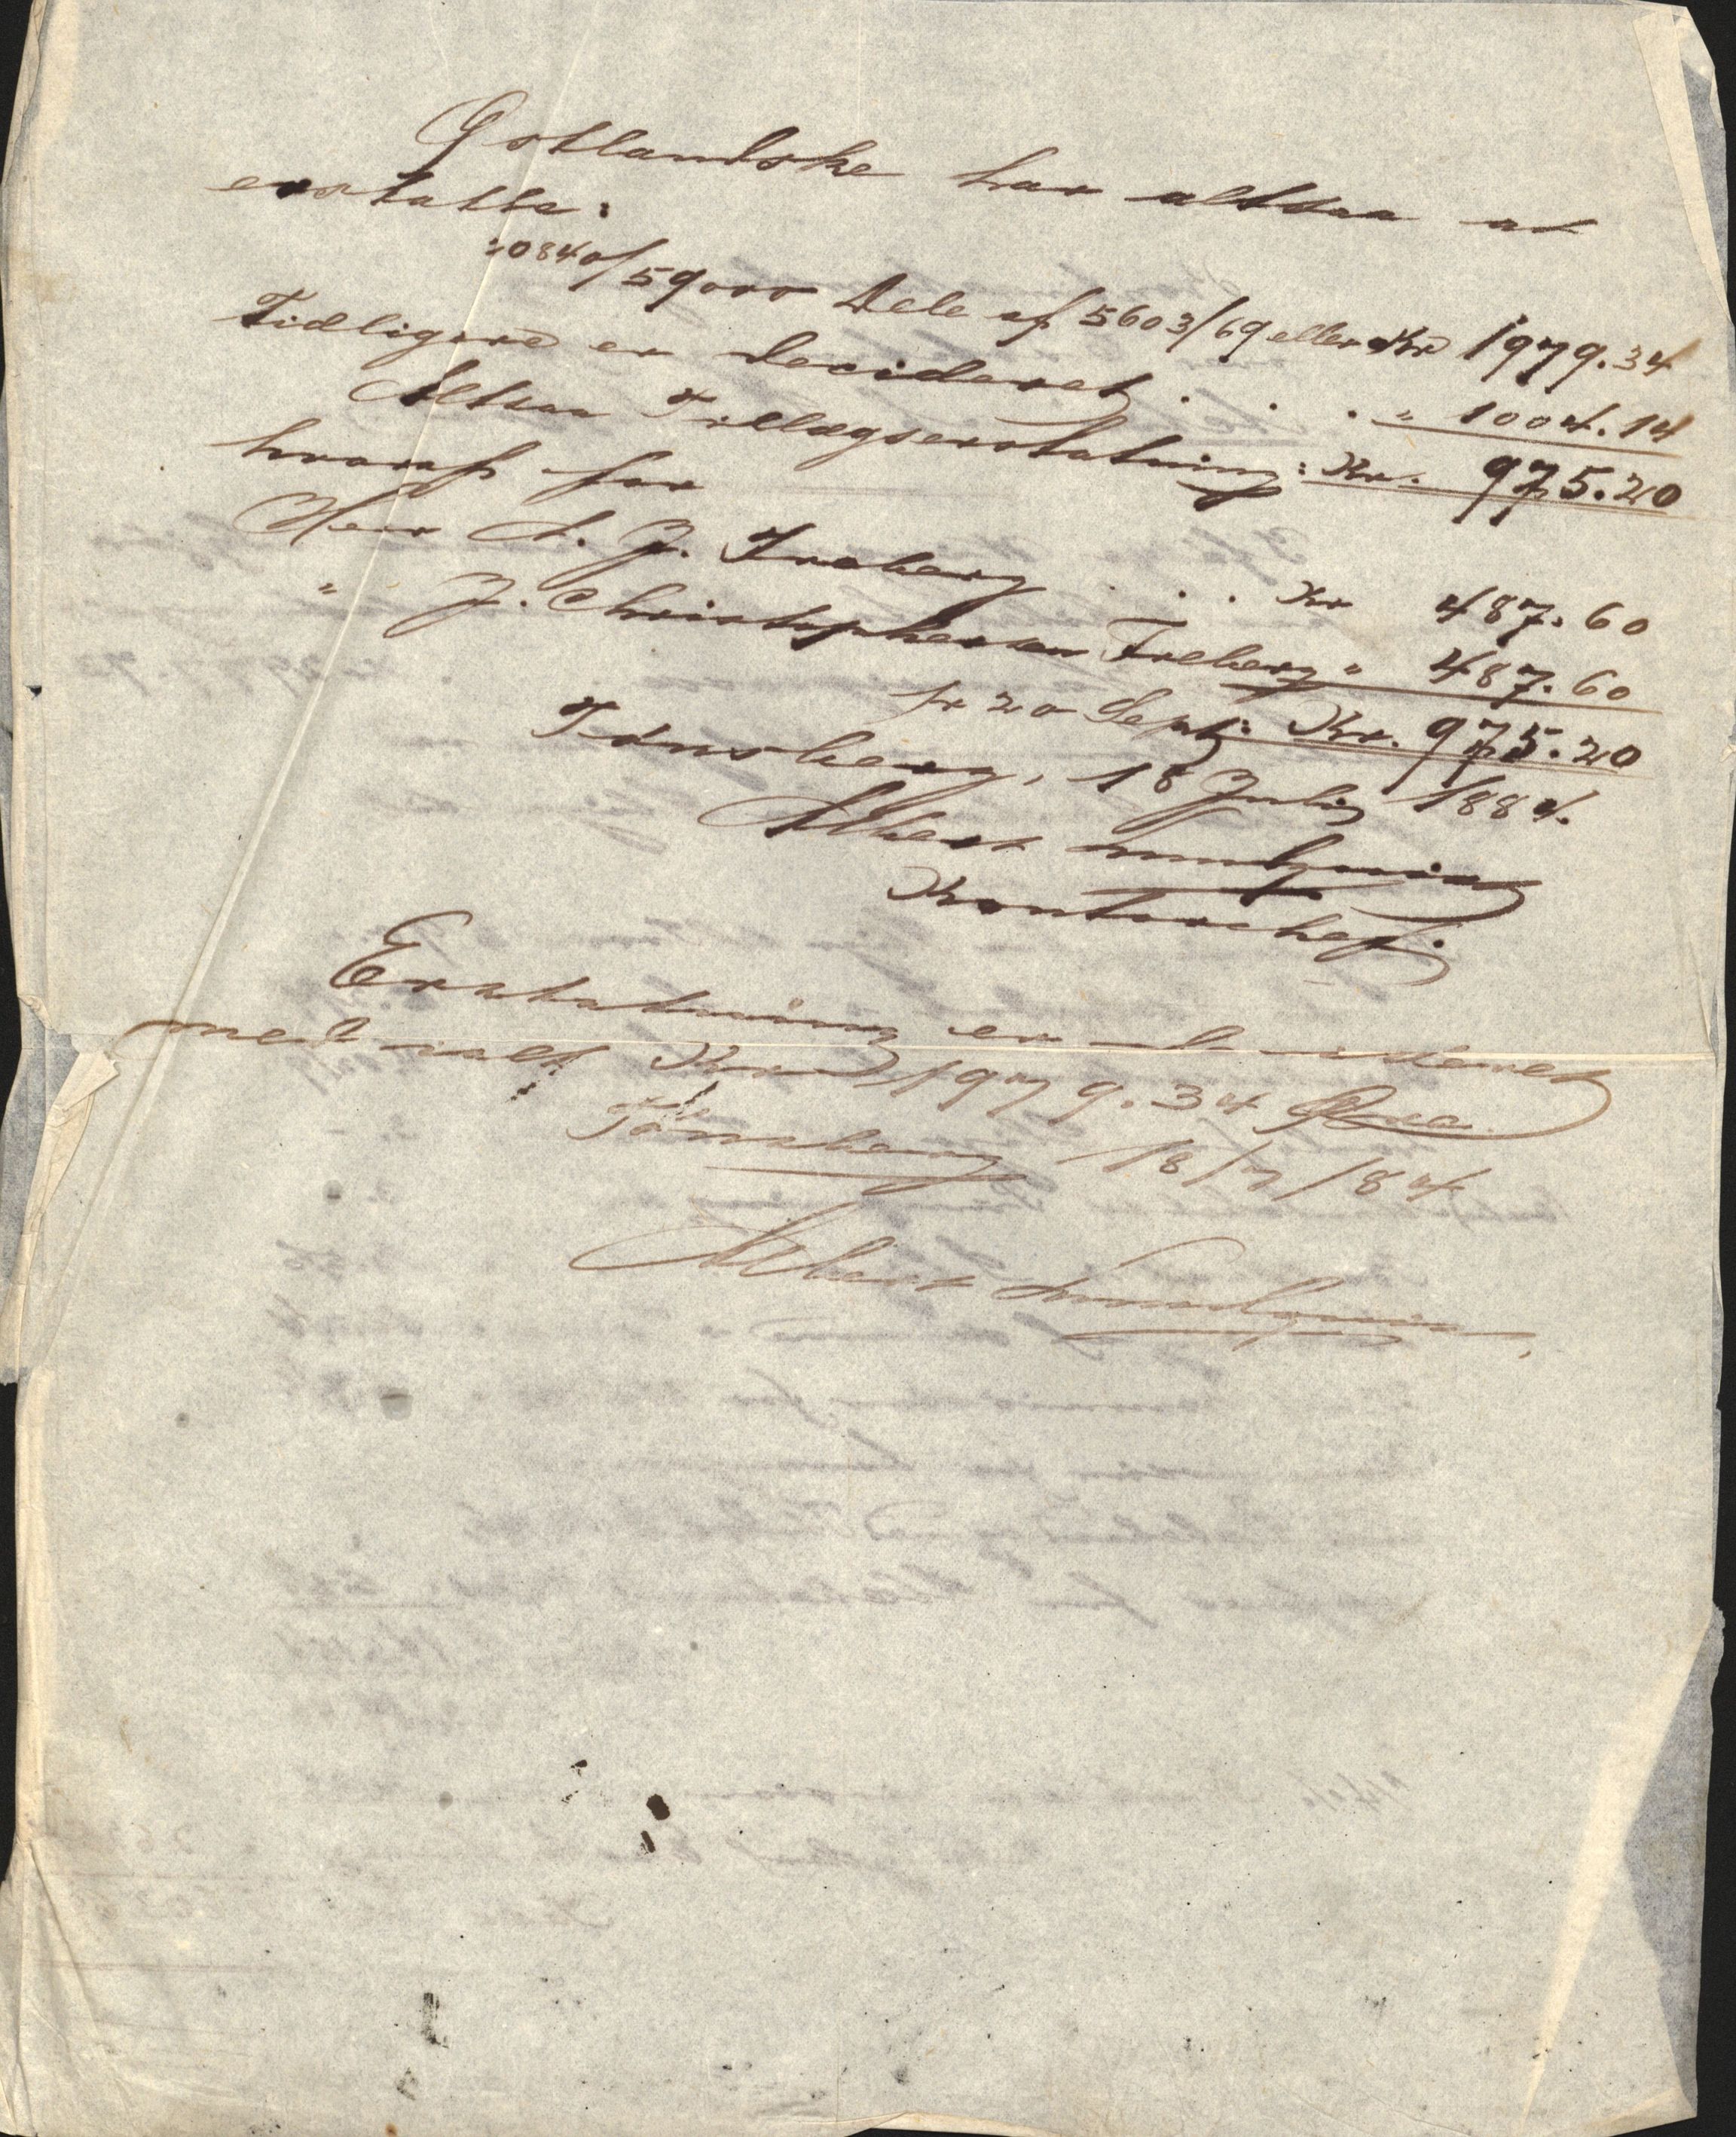 Østlandske har altsaa at
erstatte:
20840/59000 Dele af 5603/69 eller Kr 1979.34
Tidligere er decideret . . . " 1004.14
Altsaa Tillægserstatning: Kr. 975.20
hvoraf for
Herr A. J. Freberg . . . Kr 487.60
" J. Christophersen Freberg " 487.60
pr 20 Septr: Kr. 975.20
Tønsberg, 18 Juli 1884.
Albert
Kontorchef.
Erstatning er decideret
med ialt Kr 1979.34 Øre.
Tönsberg 18/7/84
Albert